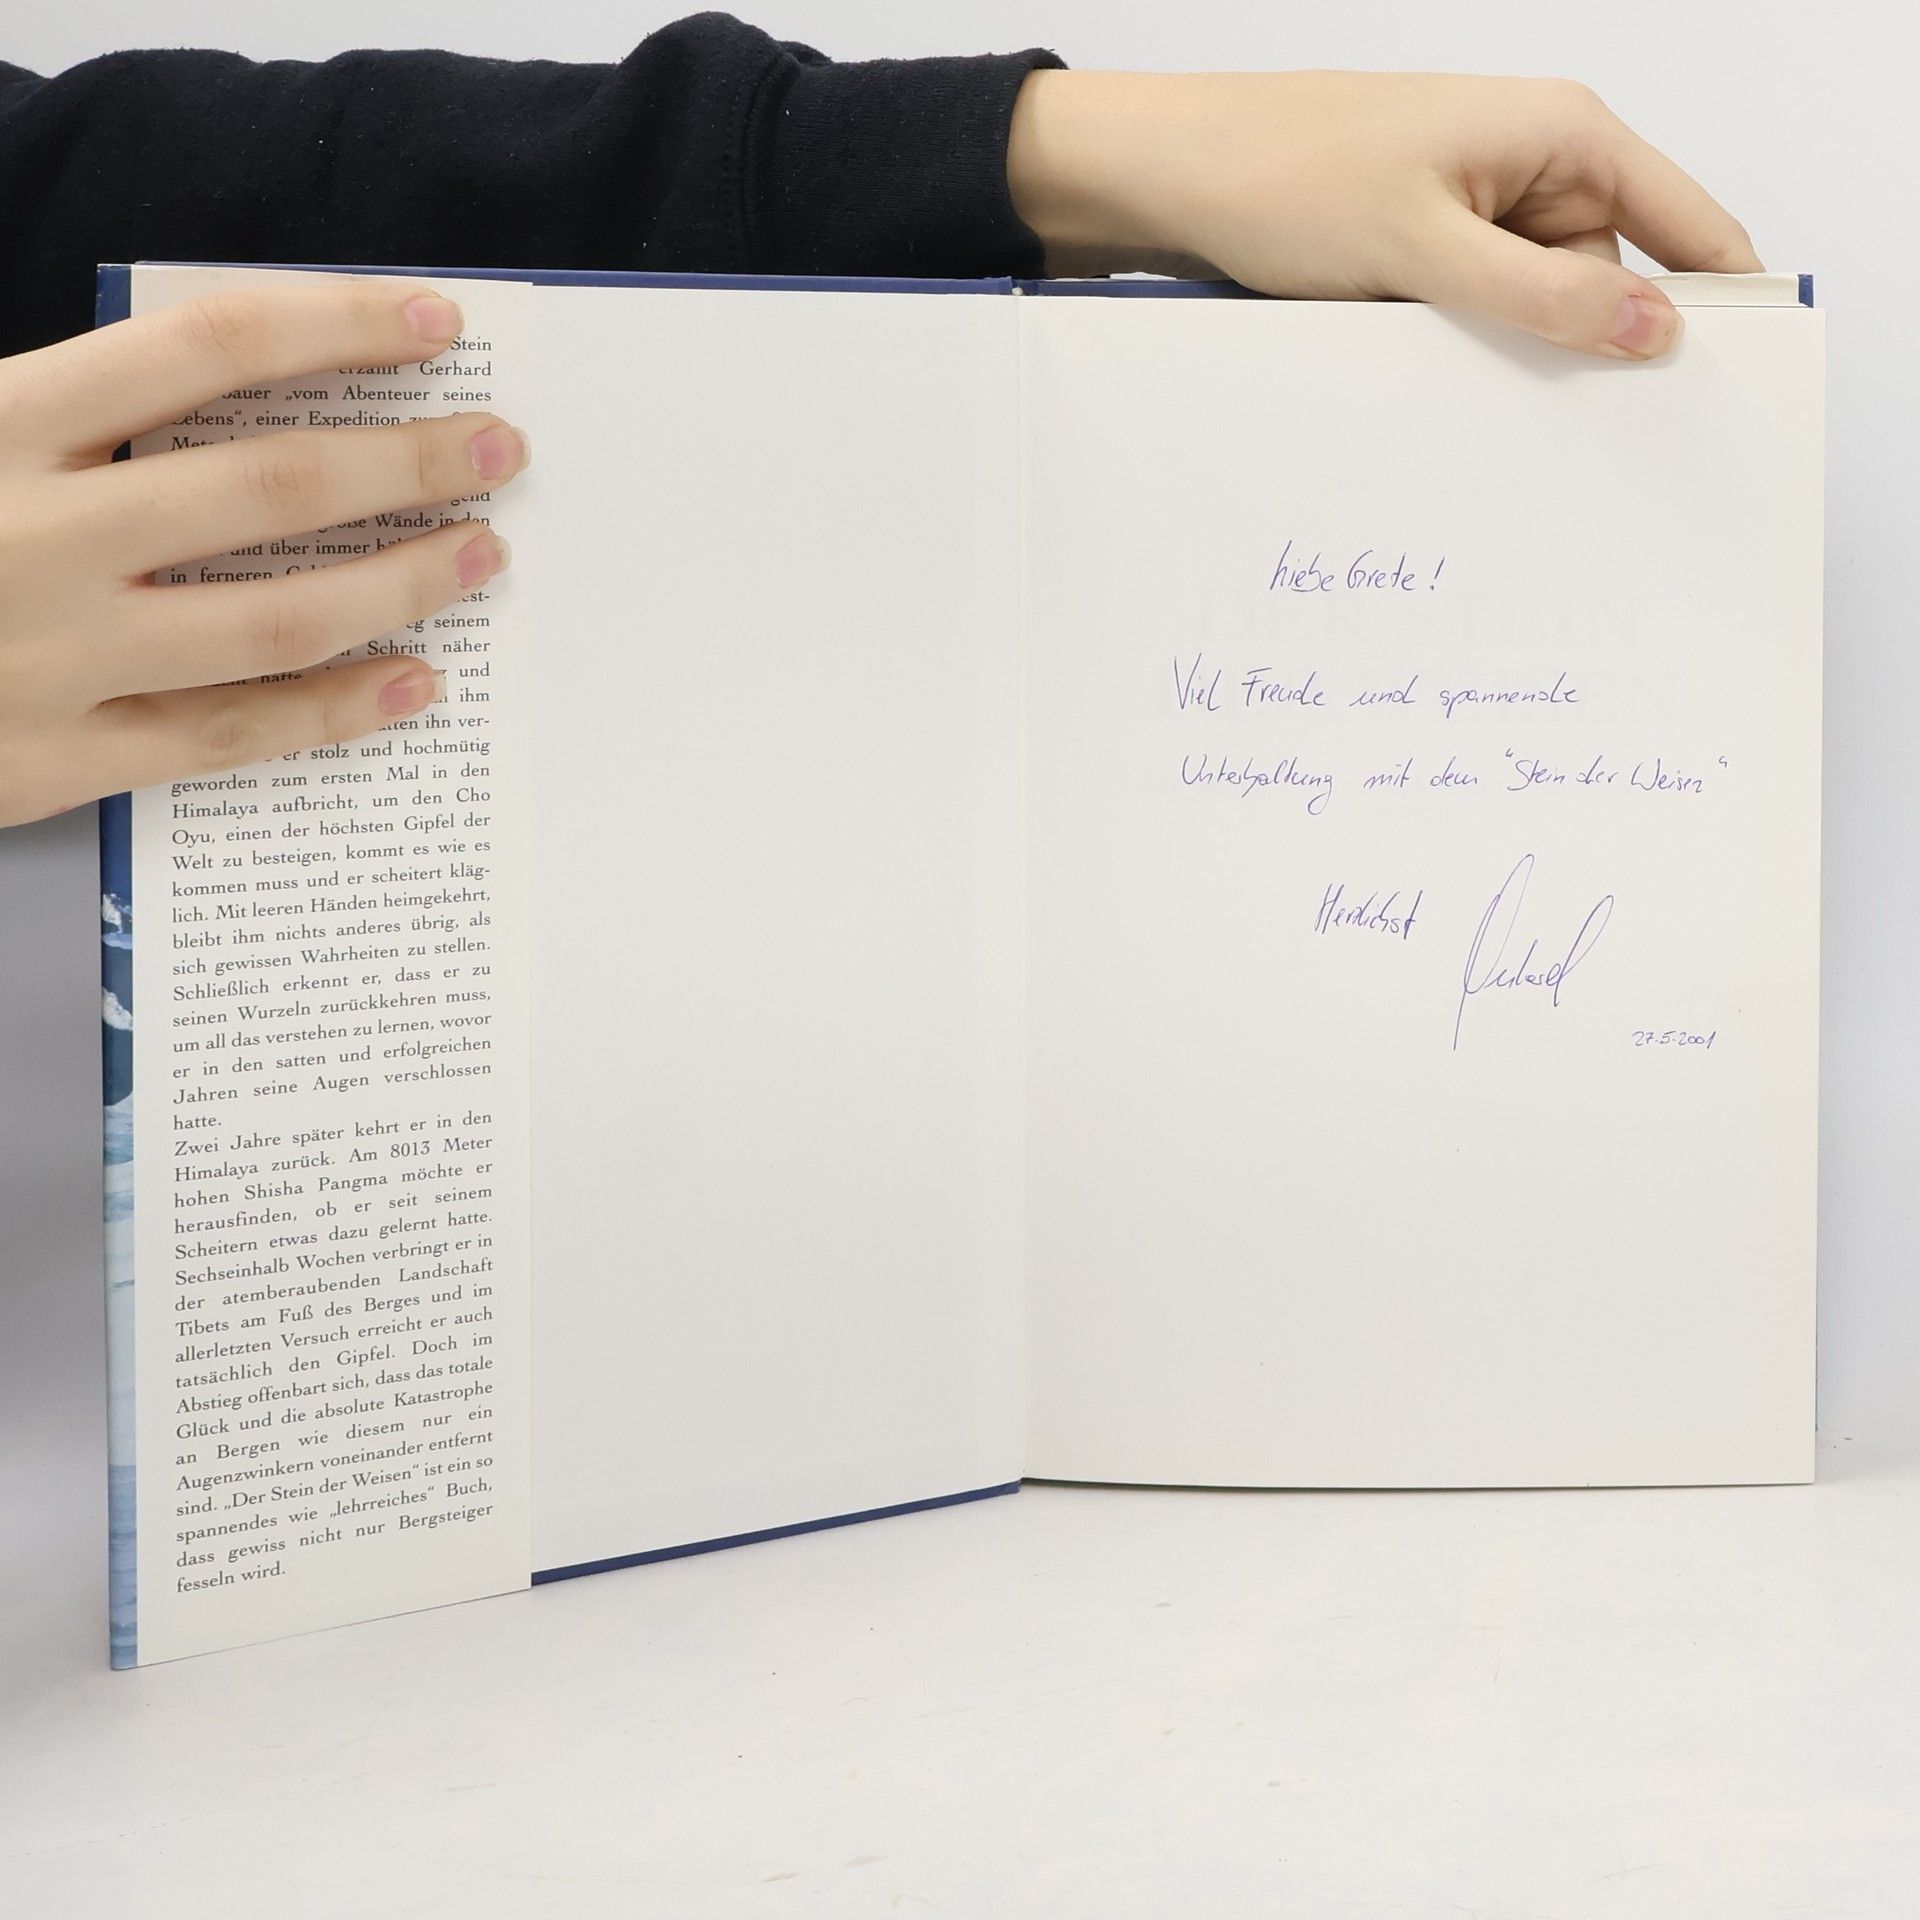 Stein
erzählt Gerhard
bauer „vom Abenteuer seines
Lebens“, einer Expedition
große Wände in den
und über immer
in ferneren
est-
seinem
Schritt näher
hatte und
ihm
ihn ver-
er stolz und hochmütig
geworden zum ersten Mal in den
Himalaya aufbricht, um den Cho
Oyu, einen der höchsten Gipfel der
Welt zu besteigen, kommt es wie es
kommen muss und er scheitert kläg-
lich. Mit leeren Händen heimgekehrt,
bleibt ihm nichts anderes übrig, als
sich gewissen Wahrheiten zu stellen.
Schließlich erkennt er, dass er zu
seinen Wurzeln zurückkehren muss,
um all das verstehen zu lernen, wovor
er in den satten und erfolgreichen
Jahren seine Augen verschlossen
hatte.
Zwei Jahre später kehrt er in den
Himalaya zurück. Am 8013 Meter
hohen Shisha Pangma möchte er
herausfinden, ob er seit seinem
Scheitern etwas dazu gelernt hatte.
Sechseinhalb Wochen verbringt er in
der atemberaubenden Landschaft
Tibets am Fuß des Berges und im
allerletzten Versuch erreicht er auch
tatsächlich den Gipfel. Doch im
Abstieg offenbart sich, dass das totale
Glück und die absolute Katastrophe
an Bergen wie diesem nur ein
Augenzwinkern voneinander entfernt
sind. „Der Stein der Weisen“ ist ein so
spannendes wie „lehrreiches“ Buch,
dass gewiss nicht nur Bergsteiger
fesseln wird.
Liebe Grete!
Viel Freude und spannende
Unterhaltung mit dem "Stein der Weisen"
Herzlichst
27.5.2001